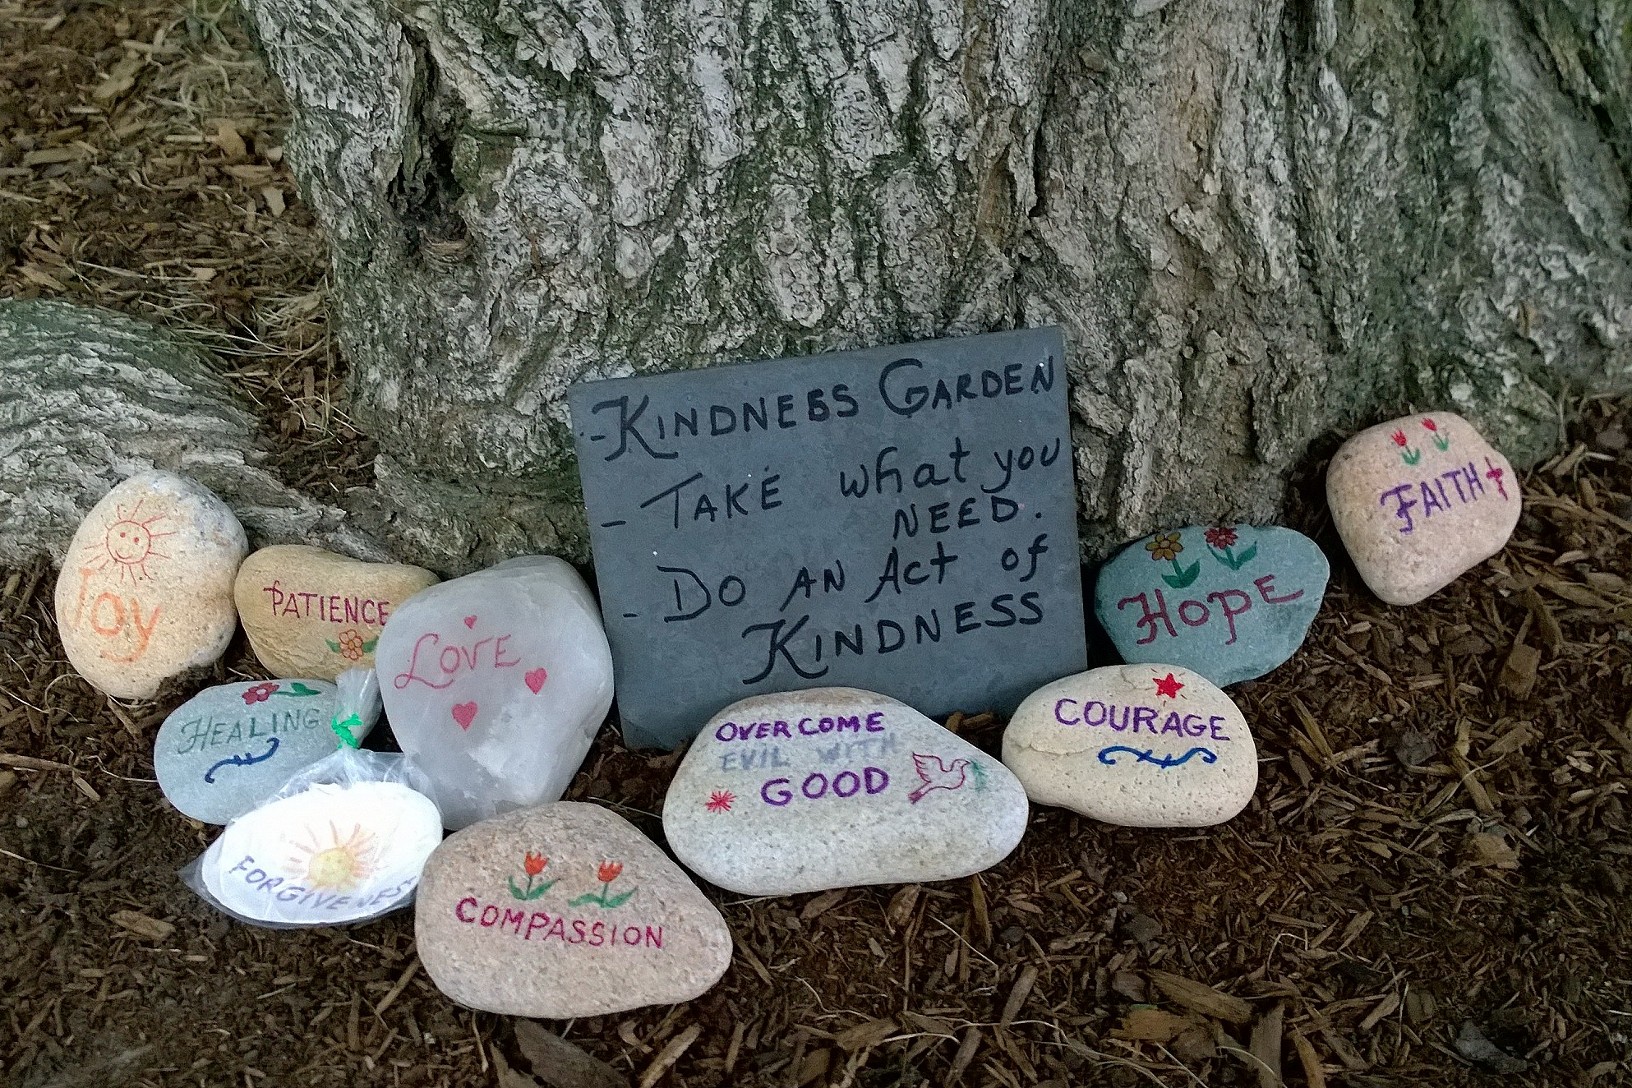 -KINDNESS GARDEN
- TAKE what you
NEED.
- DO AN Act of
KINDNESS
Joy
PATIENCE
LOVE
HEALING
FORGIVENESS
COMPASSION
OVERCOME
EVIL WITH
GOOD
COURAGE
HOPE
FAITH